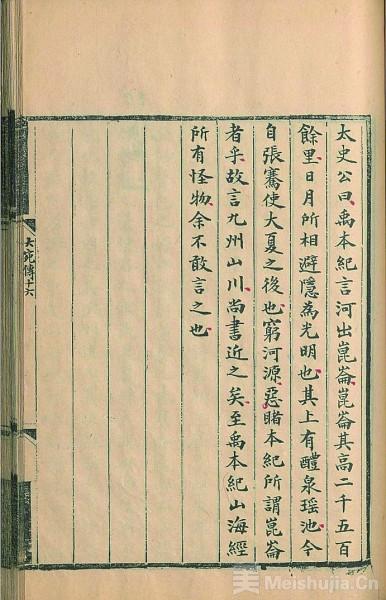 太史公曰禹本紀言河出崑崙崑崙其高二千五百
餘里日月所相避隱為光明也其上有醴泉瑶池今
自張騫使大夏之後也窮河源惡睹本紀所謂崑崙
者乎故言九州山川尚書近之矣至禹本紀山海經
所有怪物余不敢言之也
大宛傳十六
美 Meishujia.Cn